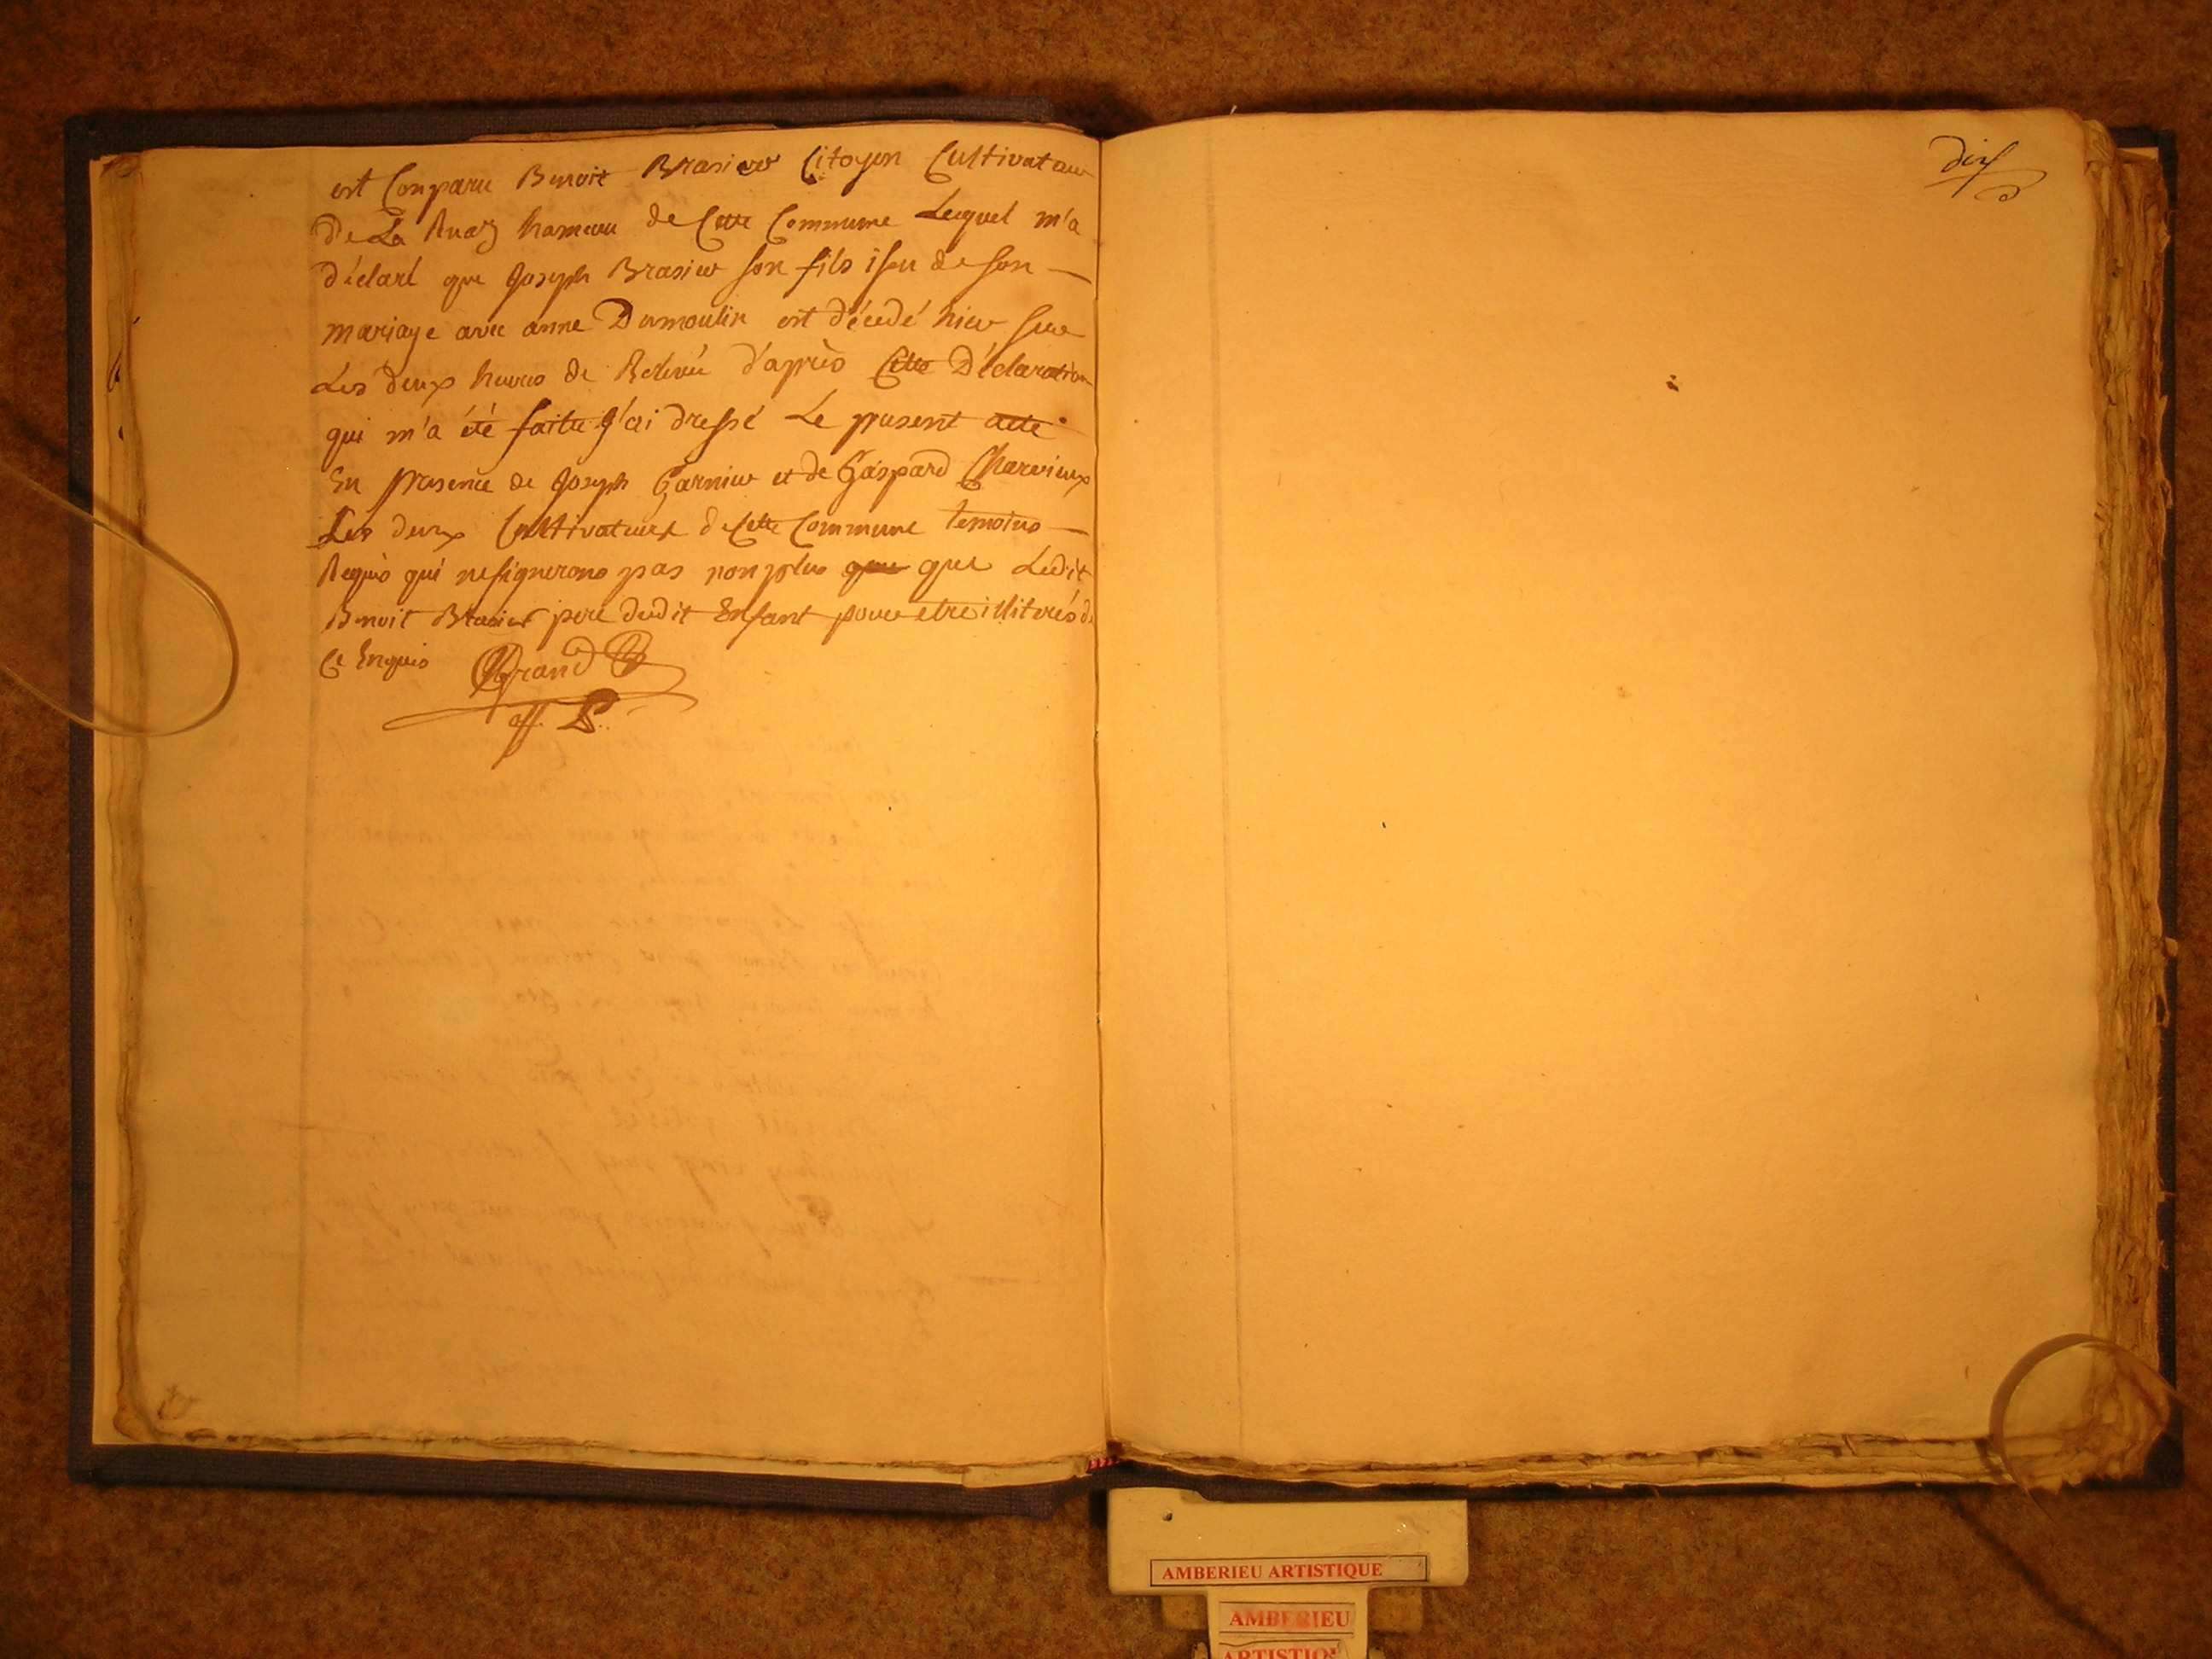 est Comparu Benoit Brasier Citoyen Cultivateur
de La Ruaz hameau de Cette Commune Lequel m'a
déclaré que Joseph Brasier son fils isu de son —
mariage avec anne Dumoulin est décedé hier sur
Les deux heures de Relevée d'après Cette Déclaration
qui m'a été faitte J'ai dressé Le present acte
En presence de Joseph Garnier et de Gaspard Charvieux
Les deux Cultivateurs de Cette Commune temoins —
Requis qui ne signerons pas non plus que Ledit
Benoit Brasier pere dudit Enfant pour etre illiterés de
Ce Enquis Grand
off. P.
dix
AMBERIEU ARTISTIQUE
AMBERIEU
ARTISTIQ